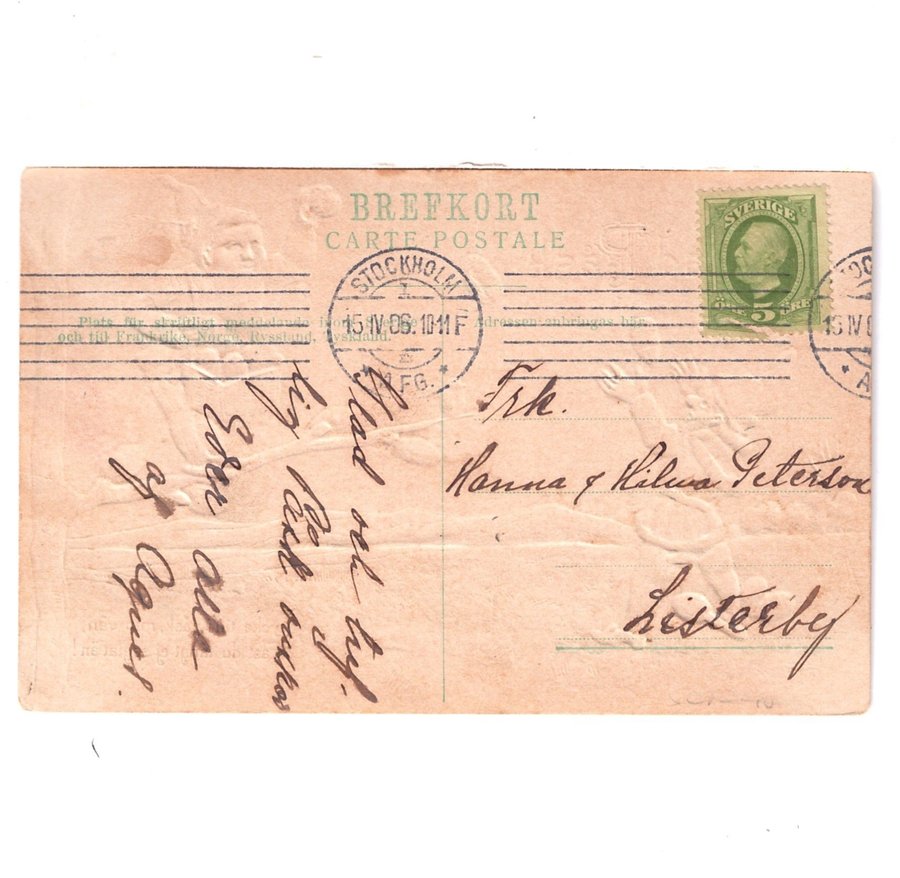 BREFKORT
CARTE POSTALE
SVERIGE
5
ÖRE
ÖRE
STOCKHOLM
1
15 IV 06. 10-11 F
1
* A FG. *
Plats för skriftligt meddelande Adressen anbringas här
och till Frankrike, Norge, Ryssland, Tyskland.
Glad och tref.
lig Påsk önskas
Eder alla
af Agnes.
Frk.
Hanna & Hilma Peterson
Listerby